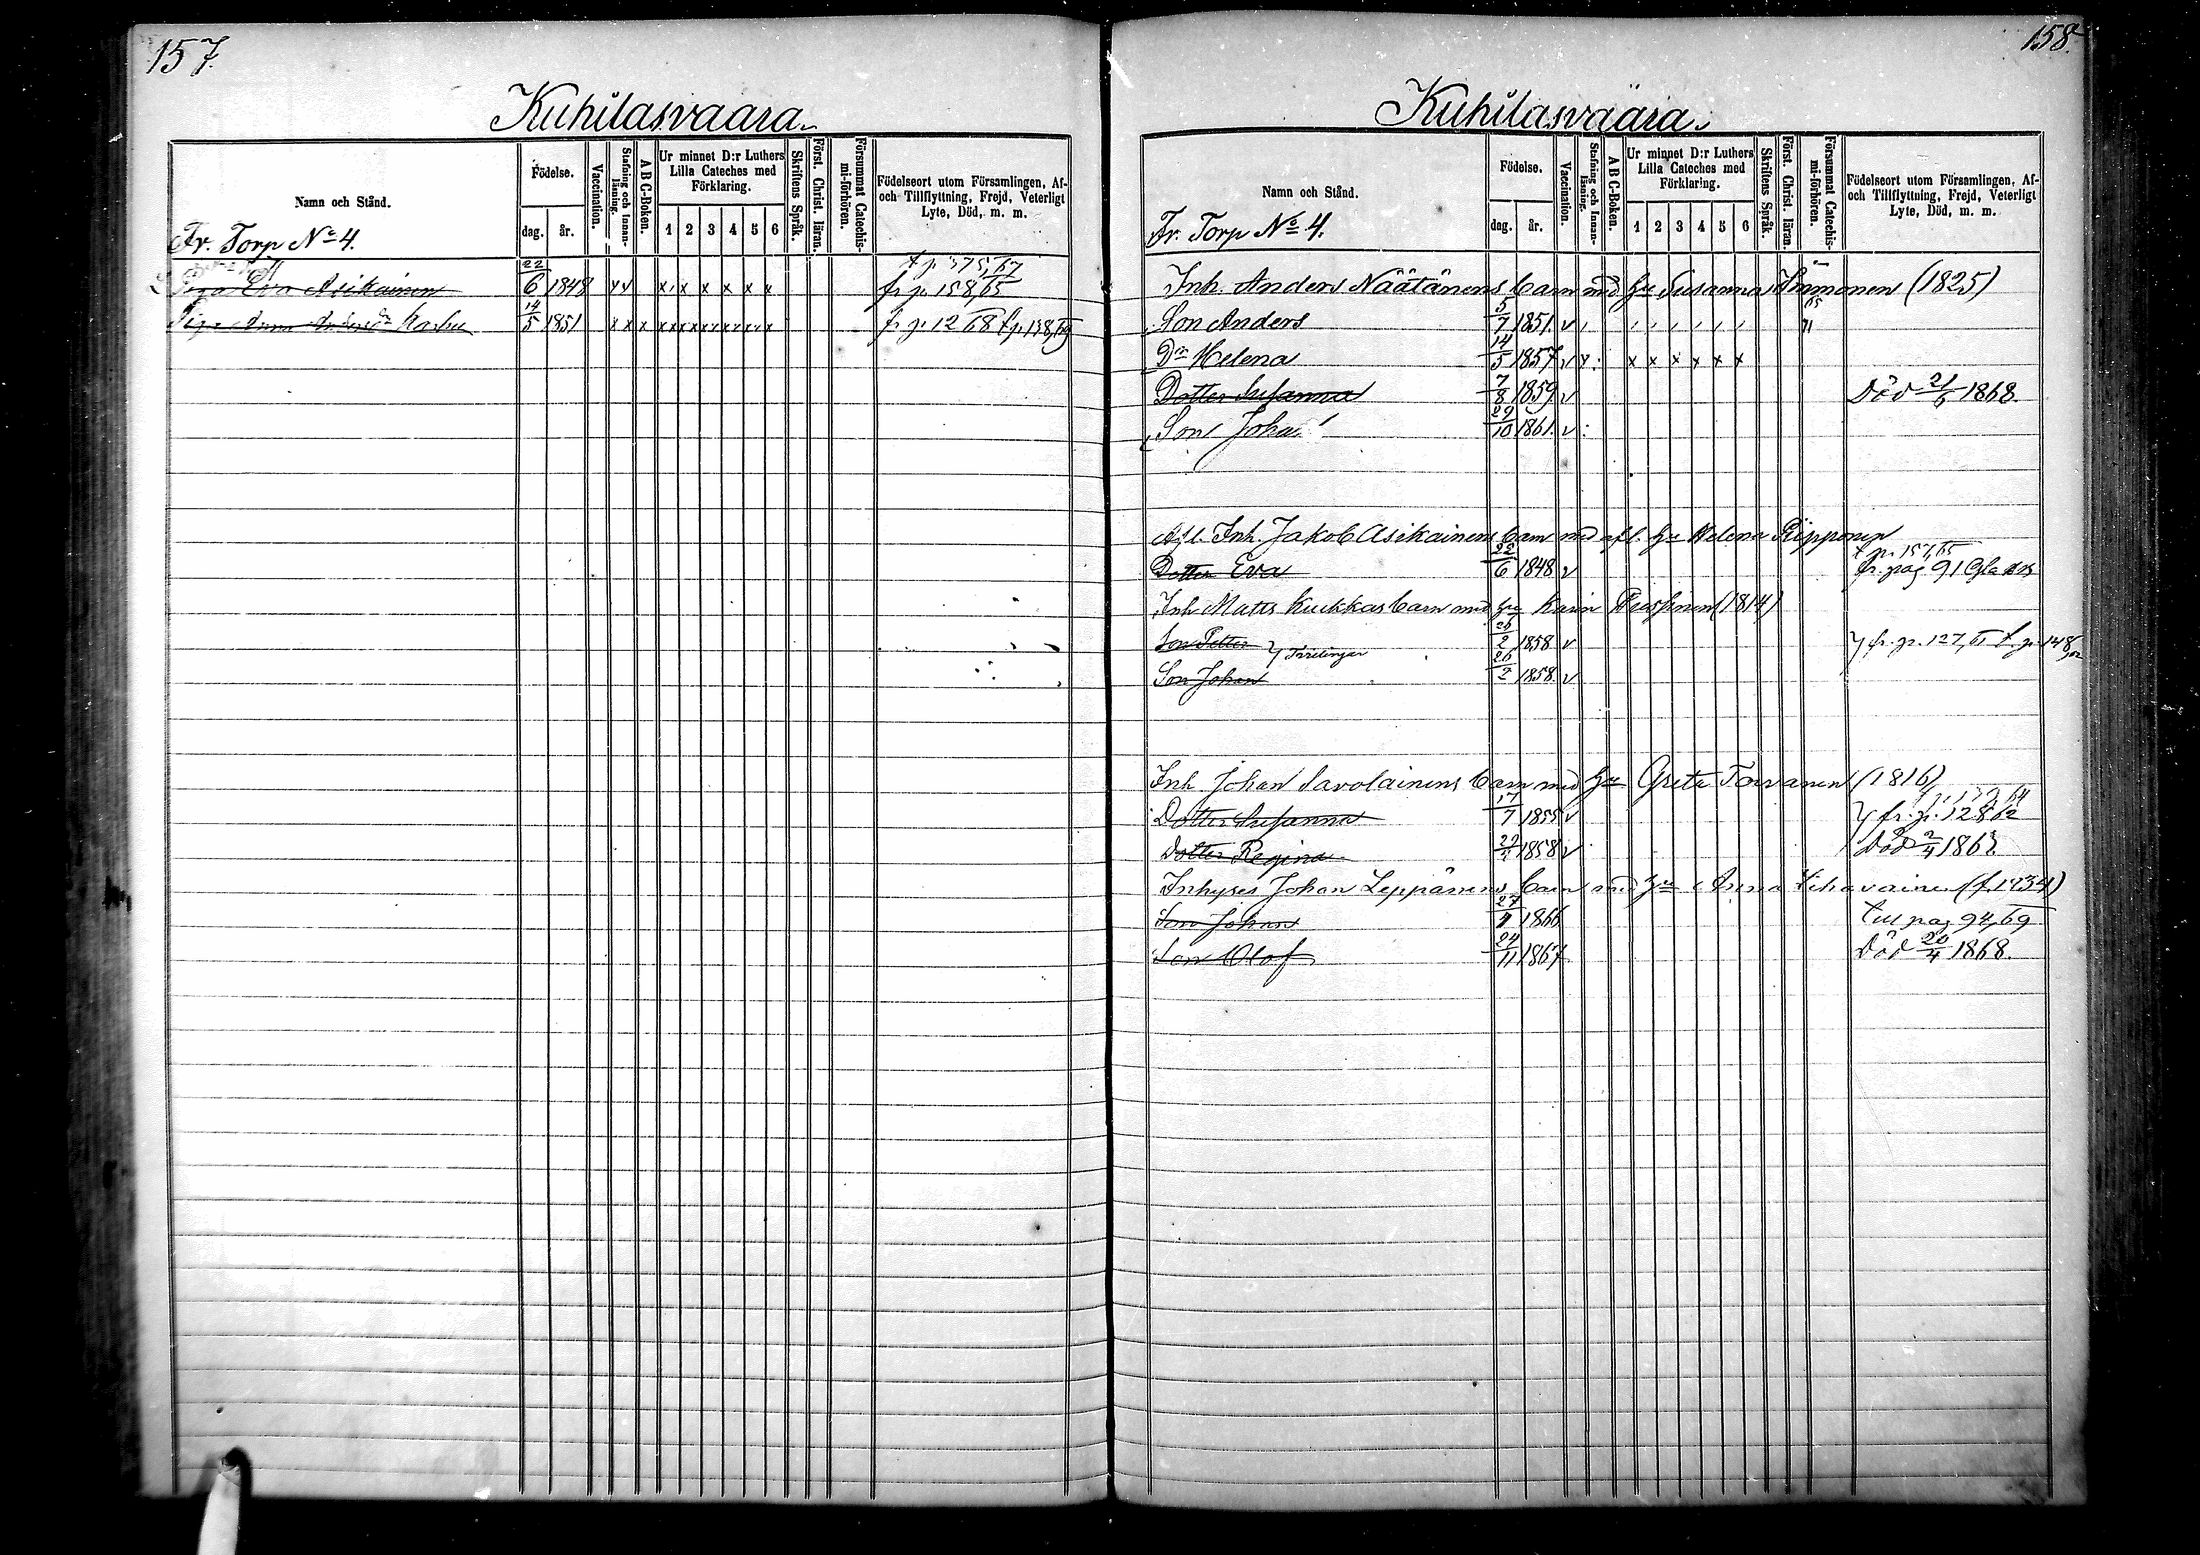 157.
Kuhilasvaara.
Namn och Stånd.
Fr. Torp No 4.
Födelse.
dag. år.
Vaccination.
Stafning och Innan-läsning.
A B C-Boken.
Ur minnet D:r Luthers Lilla Cateches med Förklaring.
1 2 3 4 5 6
Skriftens Språk.
Först. Christ. läran.
Försummat Catechis-mi-förhören.
Födelseort utom Församlingen, Af- och Tillflyttning, Frejd, Veterligt Lyte, Död, m. m.
Piga Eva Asikainen 22/6 1848 x x x x x x x x fr p. 158,65
Piga Anna 14/5 1851 x x x x x x x x x fr p. 12 68 t p. 138,69
158.
Kuhilasvaara.
Namn och Stånd.
Fr. Torp No 4.
Födelse.
dag. år.
Vaccination.
Stafning och Innan-läsning.
A B C-Boken.
Ur minnet D:r Luthers Lilla Cateches med Förklaring.
1 2 3 4 5 6
Skriftens Språk.
Först. Christ. läran.
Försummat Catechis-mi-förhören.
Födelseort utom Församlingen, Af- och Tillflyttning, Frejd, Veterligt Lyte, Död, m. m.
Inh. Anders Näätänens barn med Hu Susanna Immonen (1825)
Son Anders 5/7 1851 v
Dr Helena 14/5 1857 v x x x x x x x
Dotter Susanna 7/8 1859 v Död 21/6 1868.
Son Joha 29/10 1861. v
Afl. Inh. Jakob Asikainens barn med afl. Hu Helena Ripponen
t p. 157,65
Dotter Eva 22/6 1848 v fr. pag. 91 Gla
Inh Matts Kukkas barn med Hu Karin (1814)
Son Petter } Tvillingar 26/2 1858 v } fr. p. 127, 61 t. p. 148
Son Johan 26/2 1858. v
Inh Johan Savolainens barn med Hu Greta Torvanen (1816)
Dotter Susanna 17/7 1855 v } fr. p. 128 62
Dotter Regina 1858 v Död 2/4 1862
Inhyses Johan Leppänens barn med Hu Anna (f. 1834)
Son Johan 27/ 1866 till pag 94,69
Son Olof 24/11 1867 Död 20/4 1868.